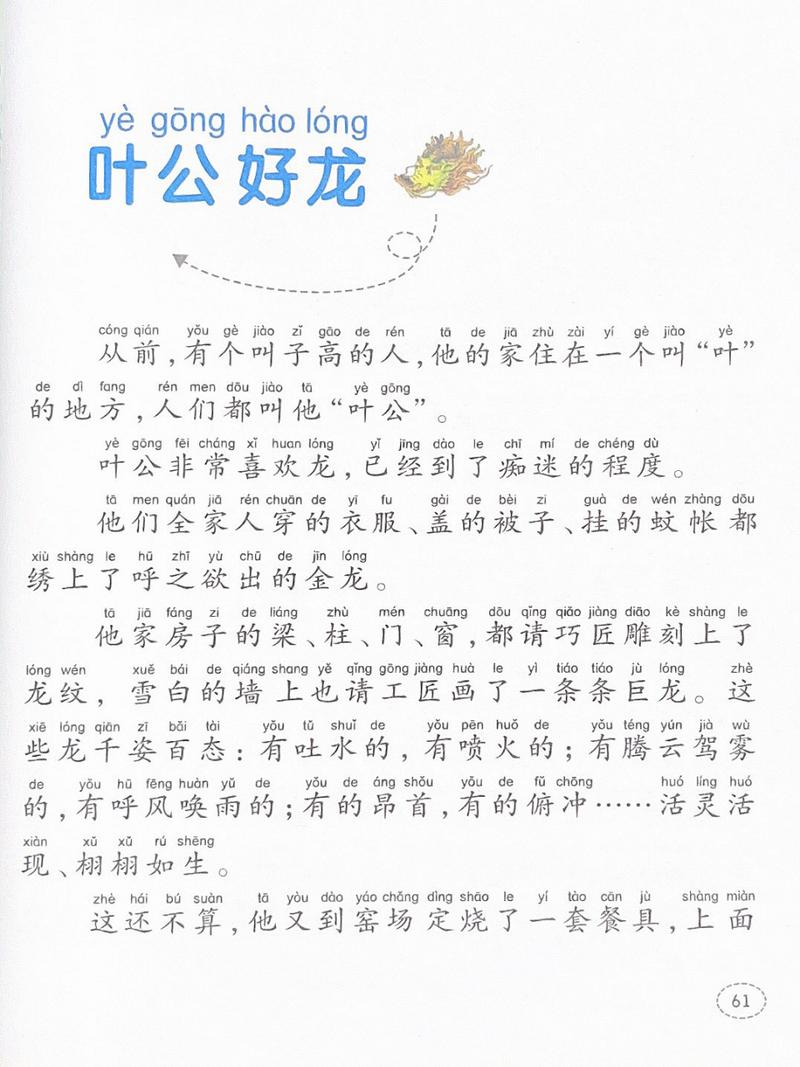 yè gōng hào lóng
叶公好龙
cóng qián yǒu gè jiào zǐ gāo de rén tā de jiā zhù zài yí gè jiào yè
从前，有个叫子高的人，他的家住在一个叫“叶”
de dì fang rén men dōu jiào tā yè gōng
的地方，人们都叫他“叶公”。
yè gōng fēi cháng xǐ huan lóng yǐ jīng dào le chī mí de chéng dù
叶公非常喜欢龙，已经到了痴迷的程度。
tā men quán jiā rén chuān de yī fu gài de bèi zi guà de wén zhàng dōu
他们全家人穿的衣服、盖的被子、挂的蚊帐都
xiù shàng le hū zhī yù chū de jīn lóng
绣上了呼之欲出的金龙。
tā jiā fáng zi de liáng zhù mén chuāng dōu qǐng qiǎo jiàng diāo kè shàng le
他家房子的梁、柱、门、窗，都请巧匠雕刻上了
lóng wén xuě bái de qiáng shang yě qǐng gōng jiàng huà le yì tiáo tiáo jù lóng zhè
龙纹，雪白的墙上也请工匠画了一条条巨龙。这
xiē lóng qiān zī bǎi tài yǒu tǔ shuǐ de yǒu pēn huǒ de yǒu téng yún jià wù
些龙千姿百态：有吐水的，有喷火的；有腾云驾雾
de yǒu hū fēng huàn yǔ de yǒu de áng shǒu yǒu de fǔ chōng huó líng huó
的，有呼风唤雨的；有的昂首，有的俯冲……活灵活
xiàn xǔ xǔ rú shēng
现、栩栩如生。
zhè hái bú suàn tā yòu dào yáo chǎng dìng shāo le yí tào cān jù shàng miàn
这还不算，他又到窑场定烧了一套餐具，上面
61